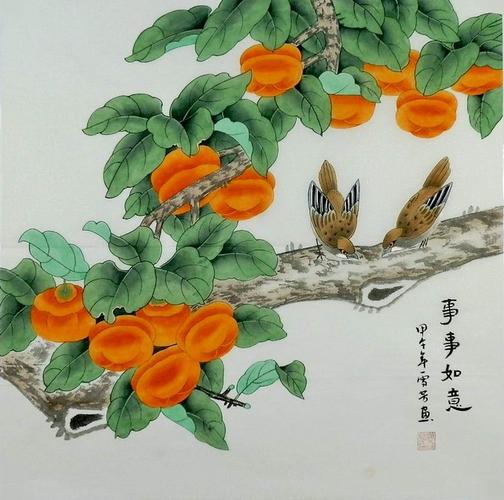 事事如意
甲午年雪芳画